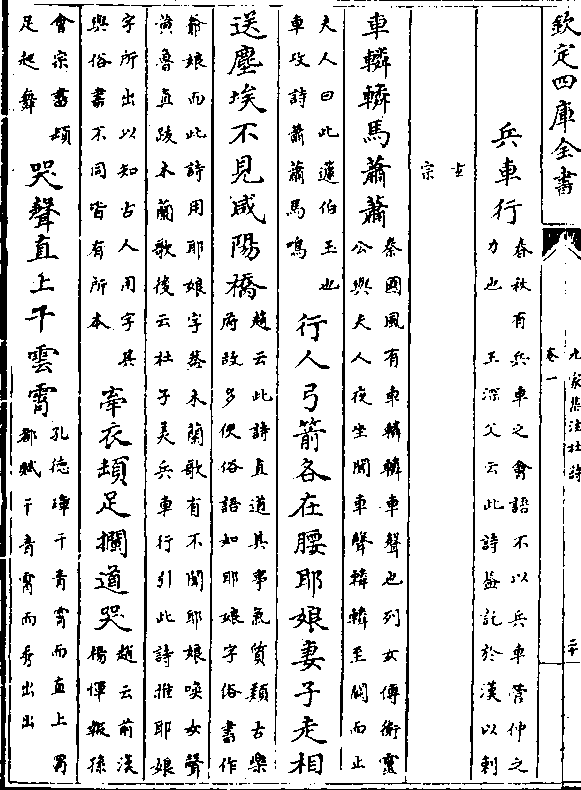 欽定四庫全書
九家集注杜詩
卷一
兵車行春秋有兵車之會語不以兵車管仲之
力也 王深父云此詩蓋託於漢以刺
玄
宗
車轔轔馬蕭蕭秦國風有車轔轔車聲也列女傳衛靈
公與夫人夜坐聞車聲轔轔至闕而止
夫人曰此蘧伯玉也
車攻詩蕭蕭馬鳴
行人弓箭各在腰耶娘妻子走相
送塵埃不見咸陽橋趙云此詩直道其事氣質類古樂
府故多使俗語如耶娘字俗書作
爺娘而此詩用耶娘字蓋木蘭歌有不聞耶娘喚女聲
黃魯直跋木蘭歌後云杜子美兵車行引此詩推耶娘
字所出以知古人用字其
與俗書不同皆有所本
牽衣頓足攔道哭趙云前漢
楊惲報孫
會宗書頓
足起舞
哭聲直上干雲霄孔德璋干青霄而直上 蜀
都賦干青霄而秀出出